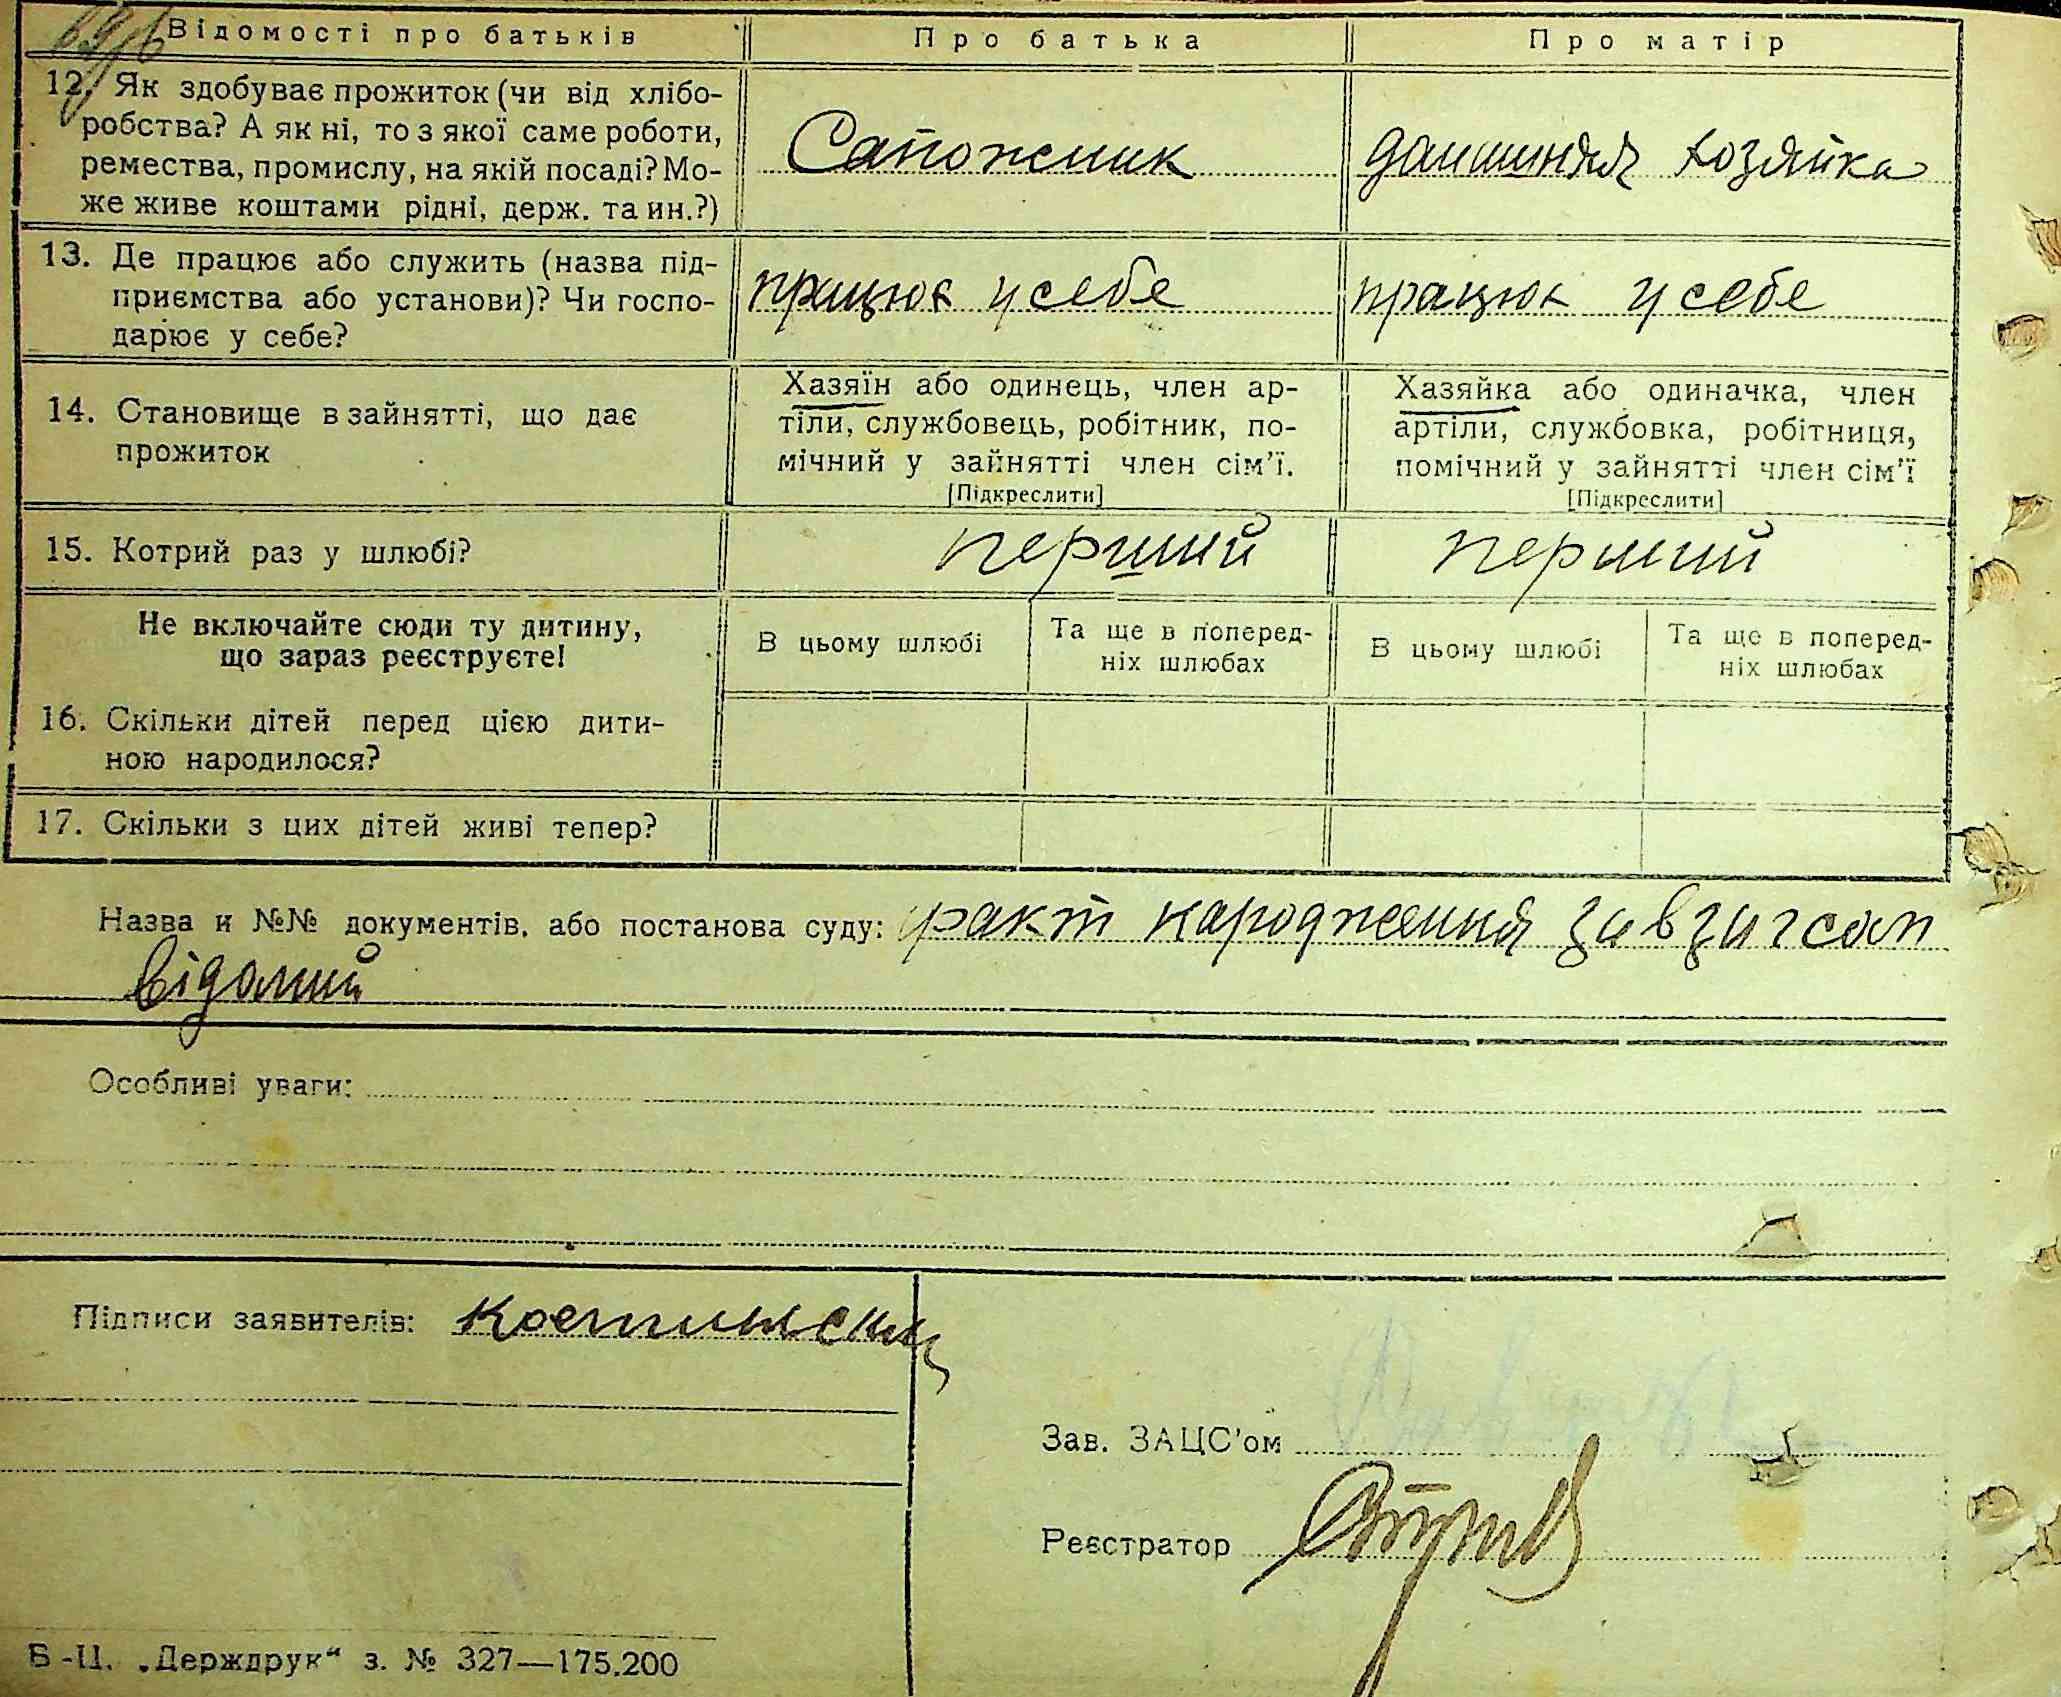 Відомості про батьків
Про батька
Про матір
12. Як здобуває прожиток (чи від хлібо-
робства? А як ні, то з якої саме роботи,
ремества, промислу, на якій посаді? Мо-
же живе коштами рідні, держ. та ин.?)
Сапожник
домашняя хозяйка
13. Де працює або служить (назва під-
приємства або установи)? Чи госпо-
дарює у себе?
працює у себе
працює у себе
14. Становище в зайнятті, що дає
прожиток
Хазяїн або одинець, член ар-
тіли, службовець, робітник, по-
мічний у зайнятті член сім'ї.
[Підкреслити]
Хазяйка або одиначка, член
артіли, службовка, робітниця,
помічний у зайнятті член сім'ї
[Підкреслити]
15. Котрий раз у шлюбі?
перший
перший
Не включайте сюди ту дитину,
що зараз реєструєте!
В цьому шлюбі
Та ще в поперед-
ніх шлюбах
В цьому шлюбі
Та ще в поперед-
ніх шлюбах
16. Скільки дітей перед цією дити-
ною народилося?
17. Скільки з цих дітей живі тепер?
Назва и №№ документів, або постанова суду: факт народження завзагсом
відомий
Особливі уваги:
Підписи заявителів:
Зав. ЗАЦС'ом
Реєстратор
Б-Ц. „Держдрук“ з. № 327—175.200